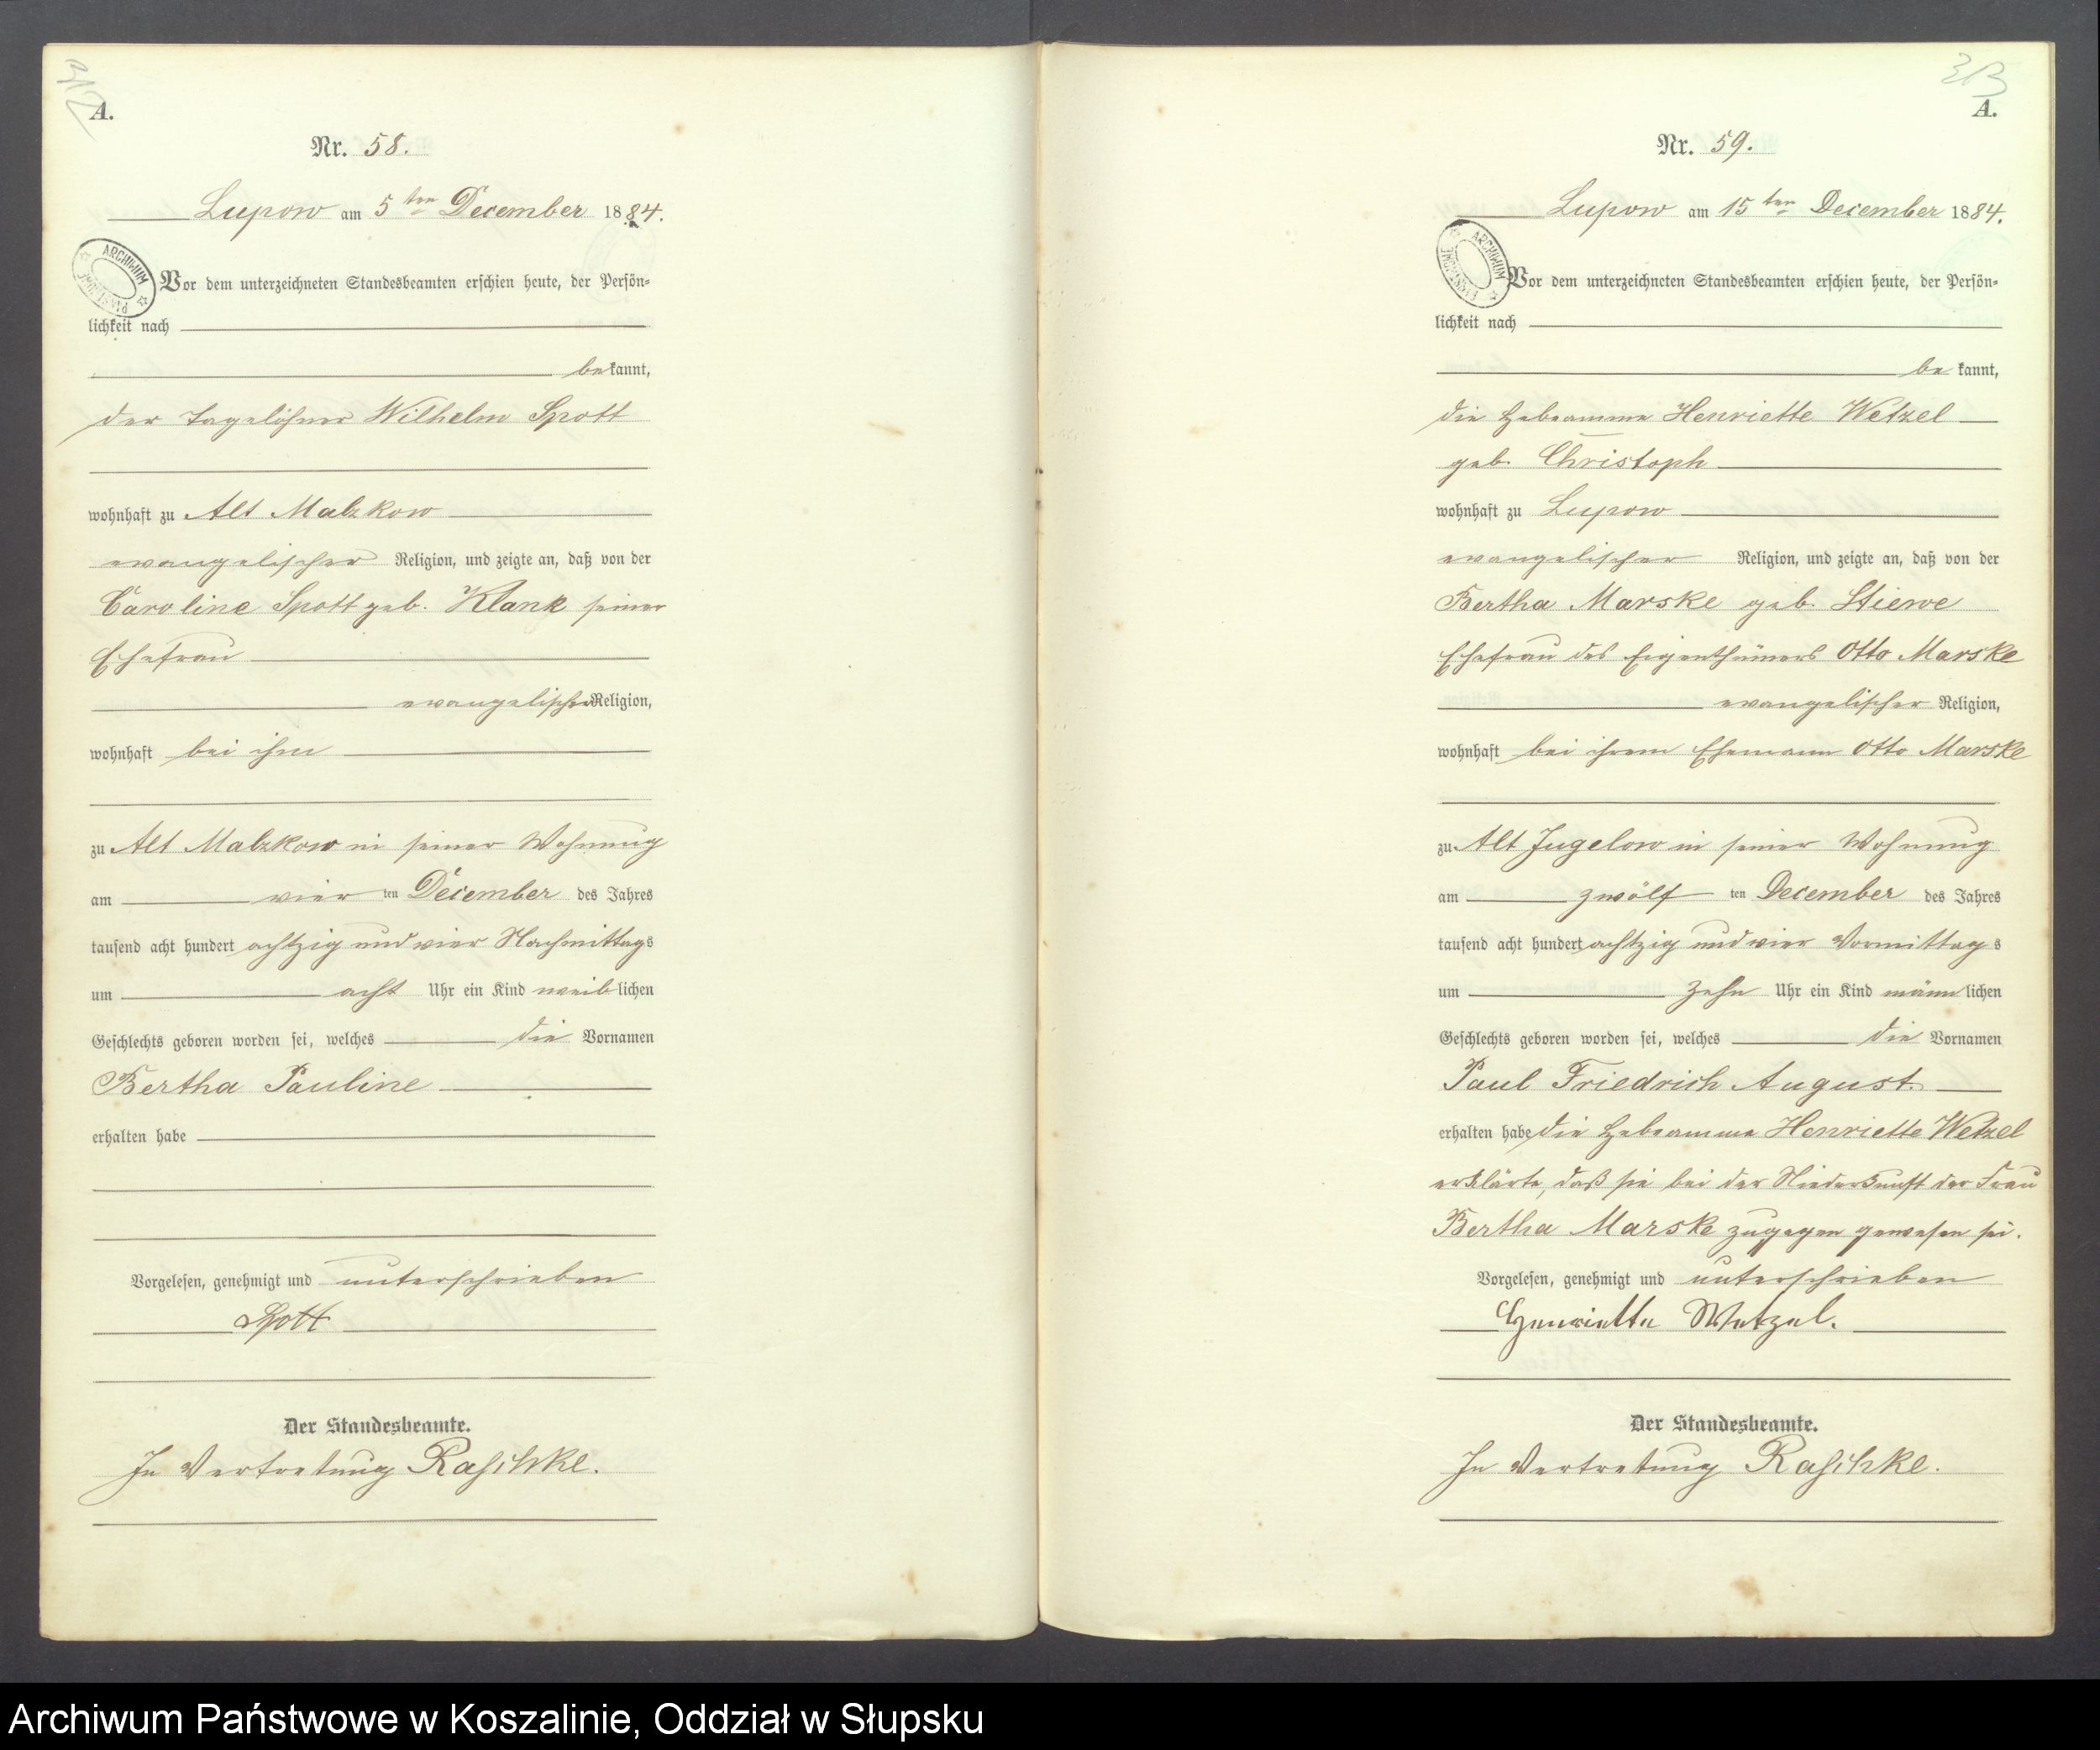 312
A.
Nr. 58.
Lupow am 5ten December 1884.
ARCHIWUM
Vor dem unterzeichneten Standesbeamten erschien heute, der Persön-
lichkeit nach
bekannt,
der Tagelöhner Wilhelm Spott
wohnhaft zu Alt Malzkow
evangelischer Religion, und zeigte an, daß von der
Caroline Spott geb. Klank seiner
Ehefrau
evangelischer Religion,
wohnhaft bei ihm
zu Alt Malzkow in seiner Wohnung
am vier ten December des Jahres
tausend acht hundert achtzig und vier Nachmittags
um acht Uhr ein Kind weiblichen
Geschlechts geboren worden sei, welches die Vornamen
Bertha Pauline
erhalten habe
Vorgelesen, genehmigt und unterschrieben
Spott
Der Standesbeamte.
In Vertretung Raschke.
313
A.
Nr. 59.
Lupow am 15ten December 1884.
ARCHIWUM
Vor dem unterzeichneten Standesbeamten erschien heute, der Persön-
lichkeit nach
bekannt,
die Hebeamme Henriette Wetzel
geb. Christoph
wohnhaft zu Lupow
evangelischer Religion, und zeigte an, daß von der
Bertha Marske geb. Stiewe
Ehefrau des Eigenthümers Otto Marske
evangelischer Religion,
wohnhaft bei ihrem Ehemann Otto Marske
zu Alt Jugelow in seiner Wohnung
am zwölf ten December des Jahres
tausend acht hundert achtzig und vier Vormittags
um zehn Uhr ein Kind männlichen
Geschlechts geboren worden sei, welches die Vornamen
Paul Friedrich August.
erhalten habe die Hebeamme Henriette Wetzel
erklärte, daß sie bei der Niederkunft der Frau
Bertha Marske zugegen gewesen sei.
Vorgelesen, genehmigt und unterschrieben
Henriette Wetzel.
Der Standesbeamte.
In Vertretung Raschke.
Archiwum Państwowe w Koszalinie, Oddział w Słupsku